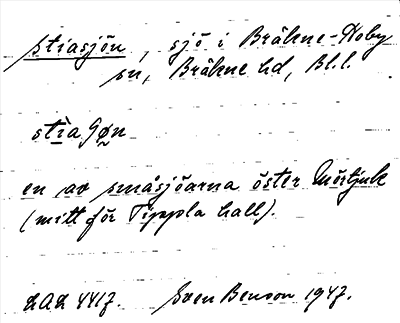 stiasjön, sjö i Bräkne-Hoby
sn, Bräkne hd, Bl.l.
stìa Gøn
en av småsjöarna öster Mörtjuk
(mitt för Tippla hall).
LAL 4417. Sven Benson 1947.